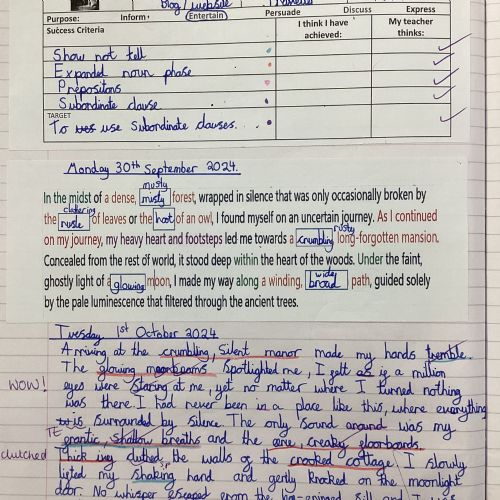 Blog / website
Purpose: Inform. Entertain Persuade Discuss Express
Success Criteria I think I have achieved: My teacher thinks:
Show not tell
Expanded noun phrase
Prepositons
Subordinate clause
TARGET
To use Subordinate clauses.
Monday 30th September 2024.
musty
In the midst of a dense, misty forest, wrapped in silence that was only occasionally broken by
clattering rusty
the rustle of leaves or the hoot of an owl, I found myself on an uncertain journey. As I continued
on my journey, my heavy heart and footsteps led me towards a crumbling long-forgotten mansion.
Concealed from the rest of world, it stood deep within the heart of the woods. Under the faint,
wide
ghostly light of a glowing moon, I made my way along a winding, broad path, guided solely
by the pale luminescence that filtered through the ancient trees.
Tuesday 1st October 2024
Arriving at the crumbling, Silent manor made my hands tremble.
The glowing moonbeams spotlighted me, I felt as if a million
WOW! eyes were staring at me, yet no matter where I turned nothing
was there. I had never been in a place like this, where everything
is surrounded by silence. The only sound around was my
frantic, shallow breaths and the eerie, creaky floorboards.
clutched Thick ivy cluthed the walls of the crooked cottage. I slowly
lifted my shaking hand and gently knocked on the moonlight
door. No whisper escaped from the